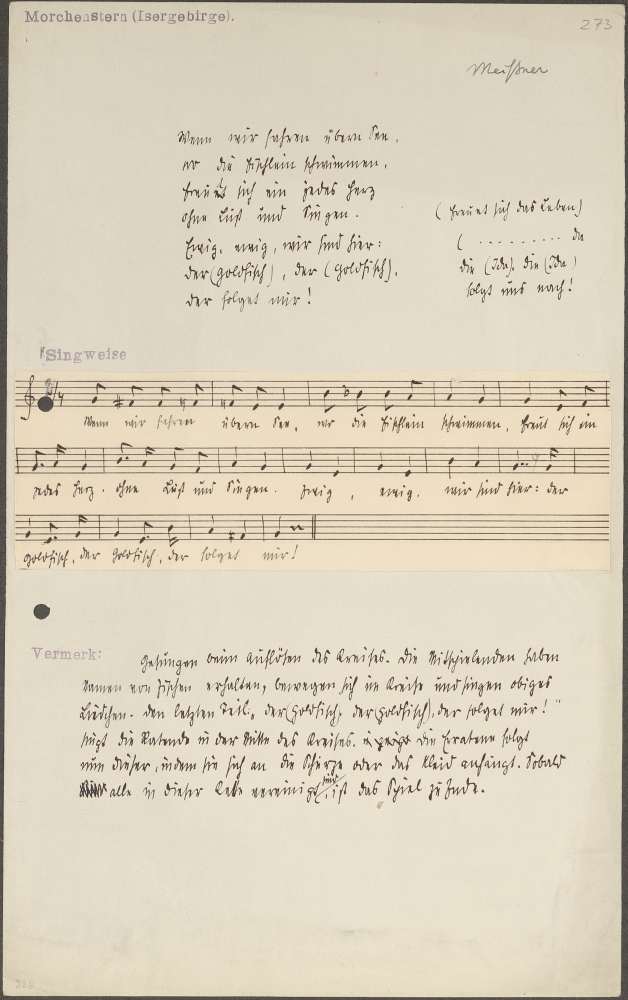 Morchenstern (Isergebirge).
273
Meißner
Wenn wir fahren übern See,
wo die Fischlein schwimmen,
freuet sich ein jedes Herz
ohne Lust und Singen. (freuet sich das Leben)
Ewig, ewig, wir sind hier: ( .......... da
der (Goldfisch), der (Goldfisch), die (Ida), die (Ida)
der folget mir! folgt uns nach!
Singweise
Wenn wir fahren übern See, wo die Fischlein schwimmen, freut sich ein
jedes Herz, ohne Lust und Singen. Ewig, ewig, wir sind hier: der
Goldfisch, der Goldfisch, der folget mir!
Vermerk: Gesungen beim Auflösen des Kreises. Die Mitspielenden haben
Namen von Fischen erhalten, bewegen sich im Kreise und singen obiges
Liedchen. Den letzten Teil: „der (Goldfisch, der (Goldfisch), der folget mir!"
singt die Ratende in der Mitte des Kreises. Die Erratene folgt
nun dieser, indem sie sich an die Schürze oder das Kleid anhängt. Sobald
alle in dieser Kette vereinigt sind, ist das Spiel zu Ende.